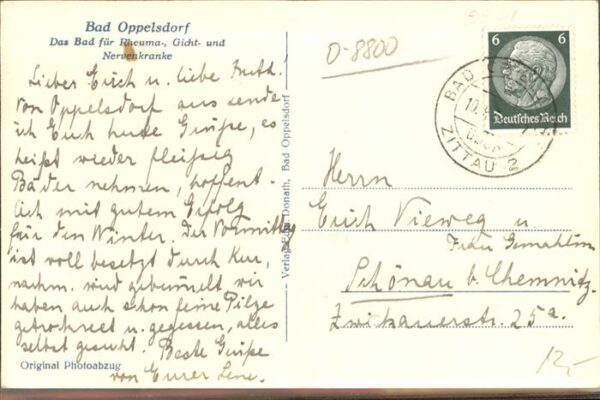 Bad Oppelsdorf
Das Bad für Rheuma-, Gicht- und
Nervenkranke
Lieber Erich u. liebe
Von Oppelsdorf aus sende
ich Euch heute Grüße, es
heißt wieder fleißig
Bäder nehmen, hoffent-
lich mit gutem Erfolg
für den Winter. Der Vormittag
ist voll besetzt durch Kur,
nachm. wird gebummelt wir
haben auch schon feine Pilze
getrocknet u. gegessen, alles
selbst gesucht. Beste Grüße
von Eurer Lene.
Original Photoabzug
Verlag Donath, Bad Oppelsdorf
D-8800
6 6
Deutsches Reich
BAD
ZITTAU 2
Herrn
Erich Vieweg u.
Frau Gemahlin
Schönau b. Chemnitz.
Zwickauerstr. 25a.
12,-